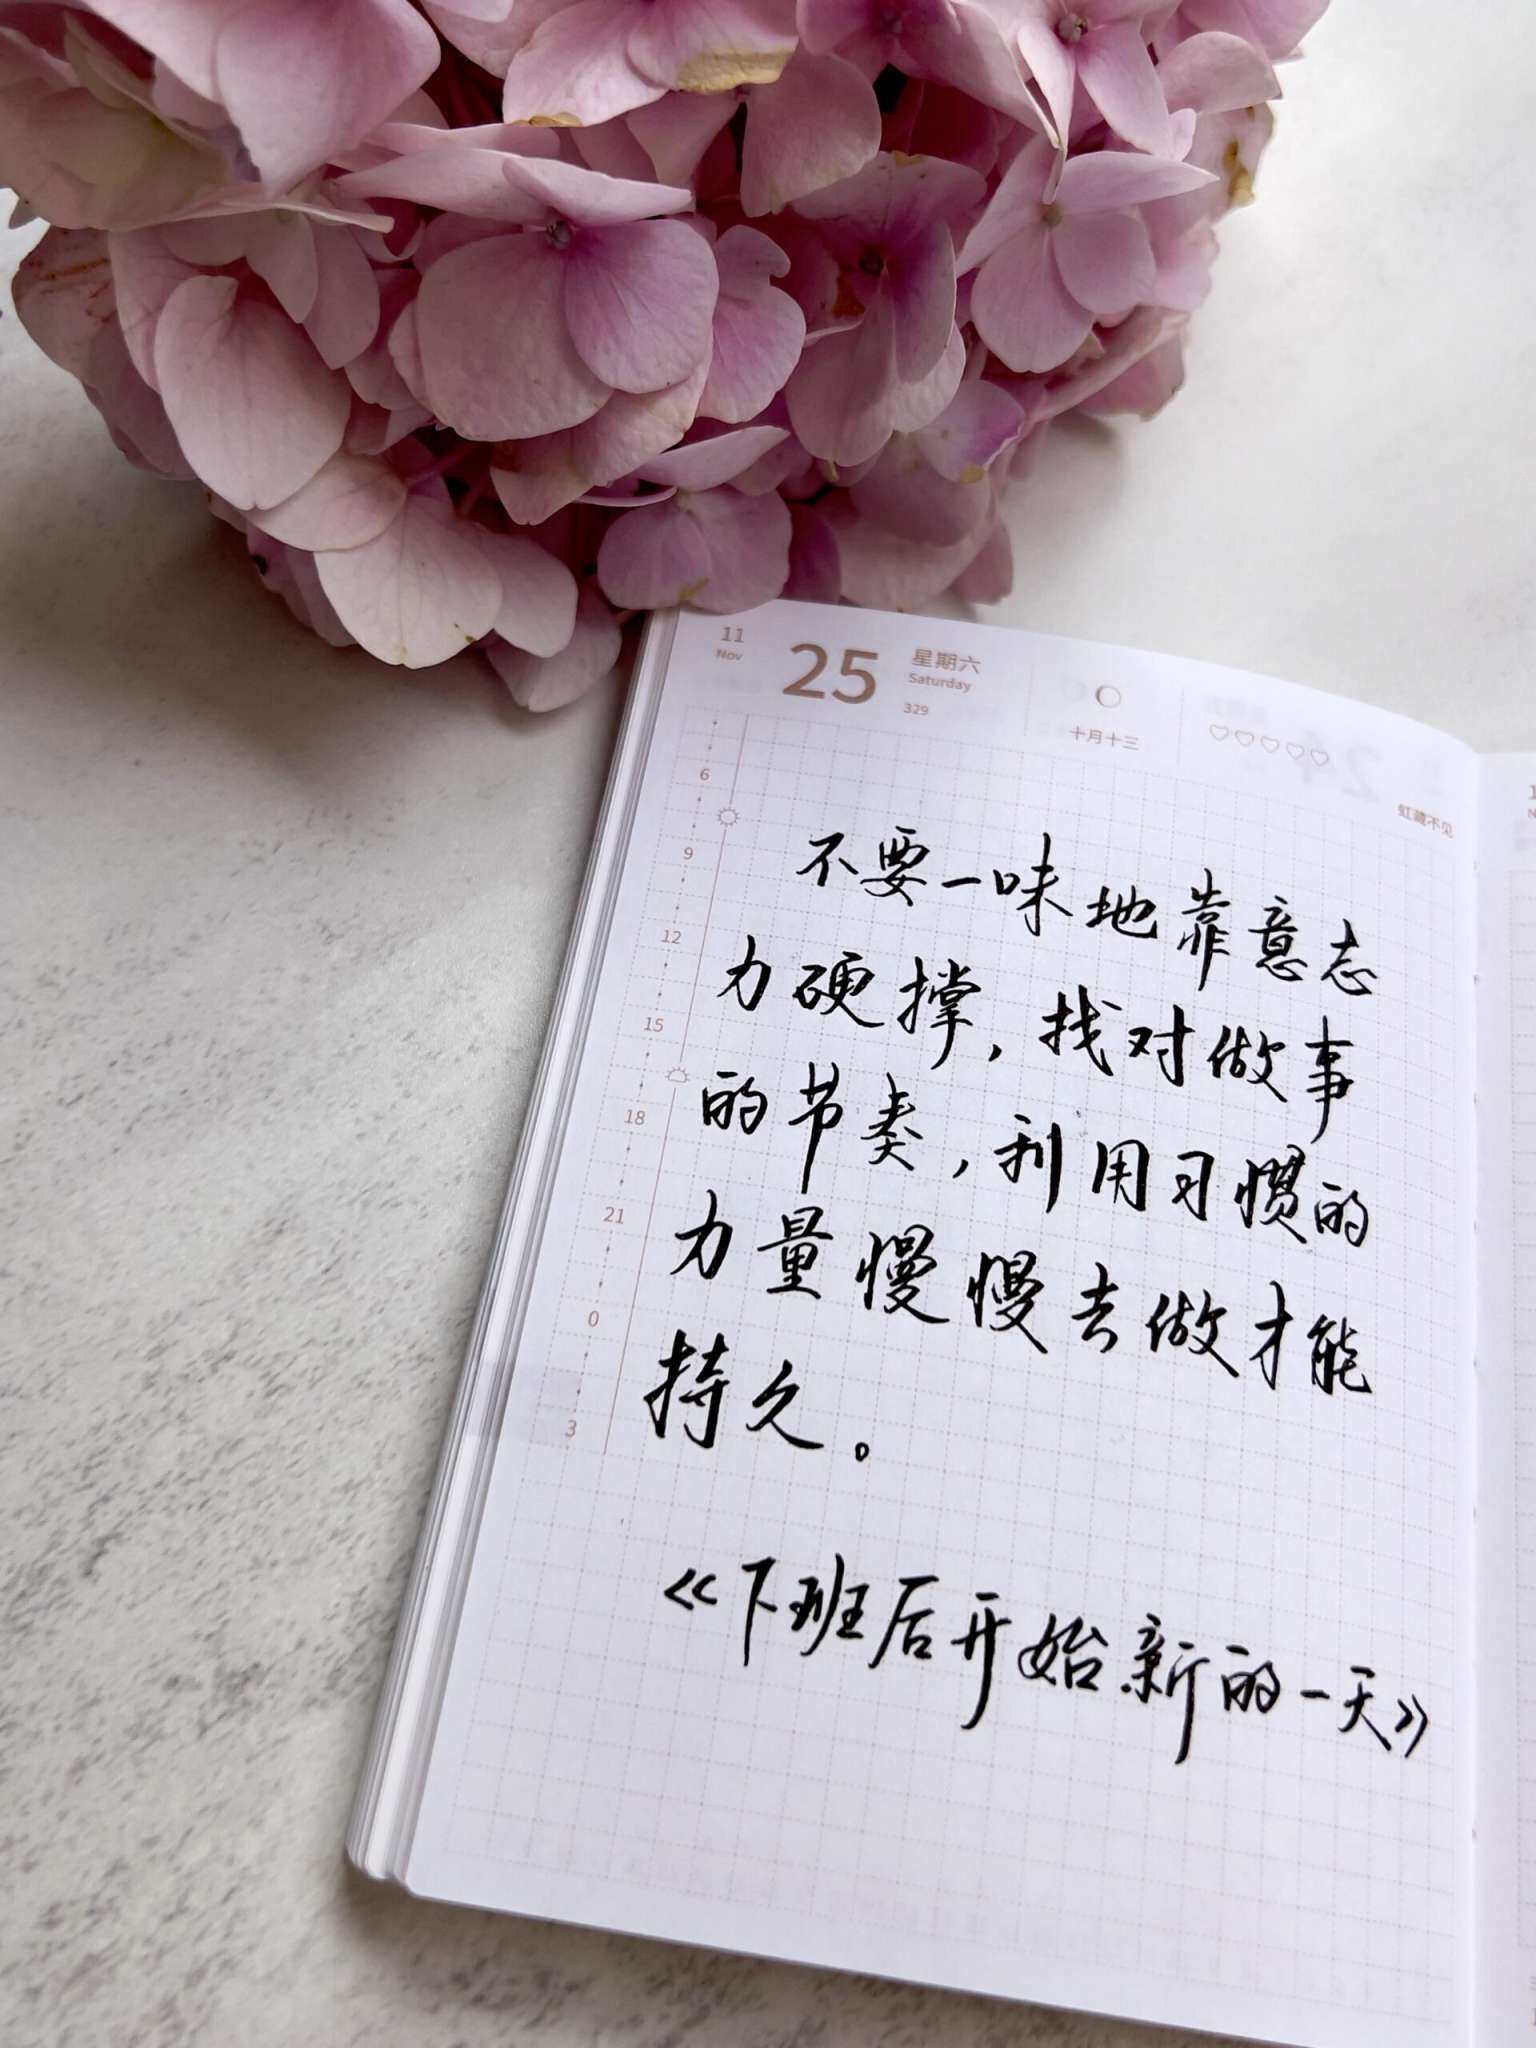 11
Nov
25
星期六
Saturday
329
十月十三
虹藏不见
6
9
12
15
18
21
0
3
不要一味地靠意志
力硬撑，找对做事
的节奏，利用习惯的
力量慢慢去做才能
持久。
《下班后开始新的一天》